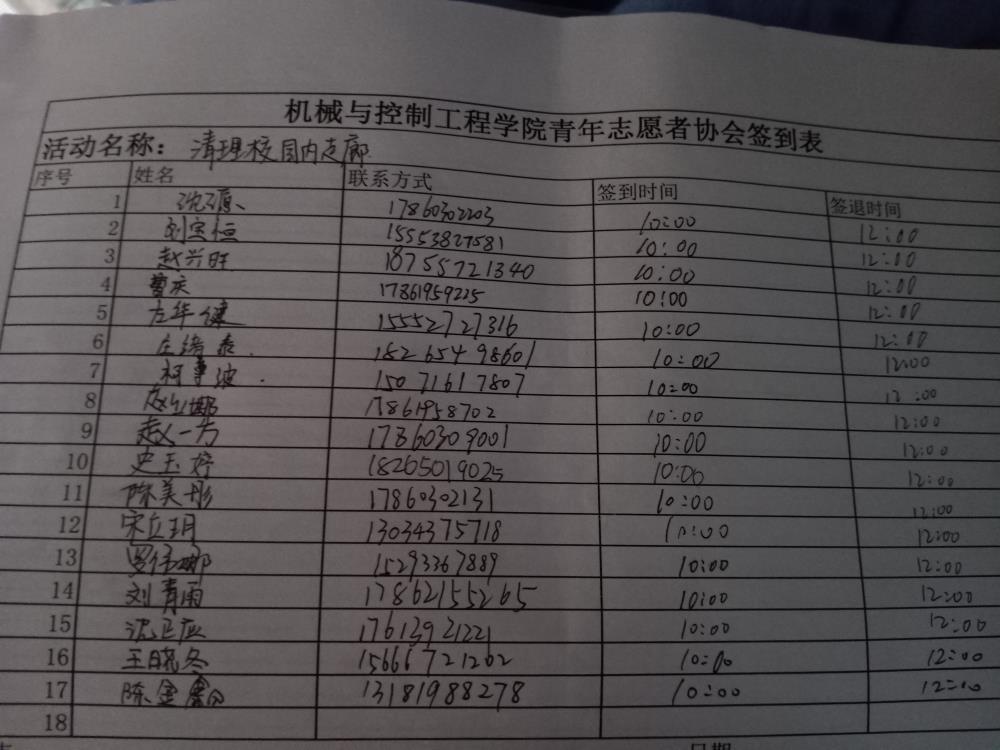 机械与控制工程学院青年志愿者协会签到表
活动名称：清理校园内走廊
序号 姓名 联系方式 签到时间 签退时间
1 沈源 17860302203 10:00 12:00
2 刘宝恒 15553827581 10:00 12:00
3 赵兴旺 18755721340 10:00 12:00
4 曹庆 17861959225 10:00 12:00
5 左华健 15552727316 10:00 12:00
6 庄绪泰 18265498601 10:00 12:00
7 柯 波 15071617807 10:00 12:00
8 17861958702 10:00 12:00
9 赵一方 17860309001 10:00 12:00
10 史玉婷 18265019025 10:00 12:00
11 陈美彤 17860302131 10:00 12:00
12 宋立玥 13034375718 10:00 12:00
13 罗伟娜 15293367889 10:00 12:00
14 刘青雨 17862155265 10:00 12:00
15 沈正应 17613921221 10:00 12:00
16 王晓冬 15666721202 10:00 12:00
17 陈金 13181988278 10:00 12:00
18
日期